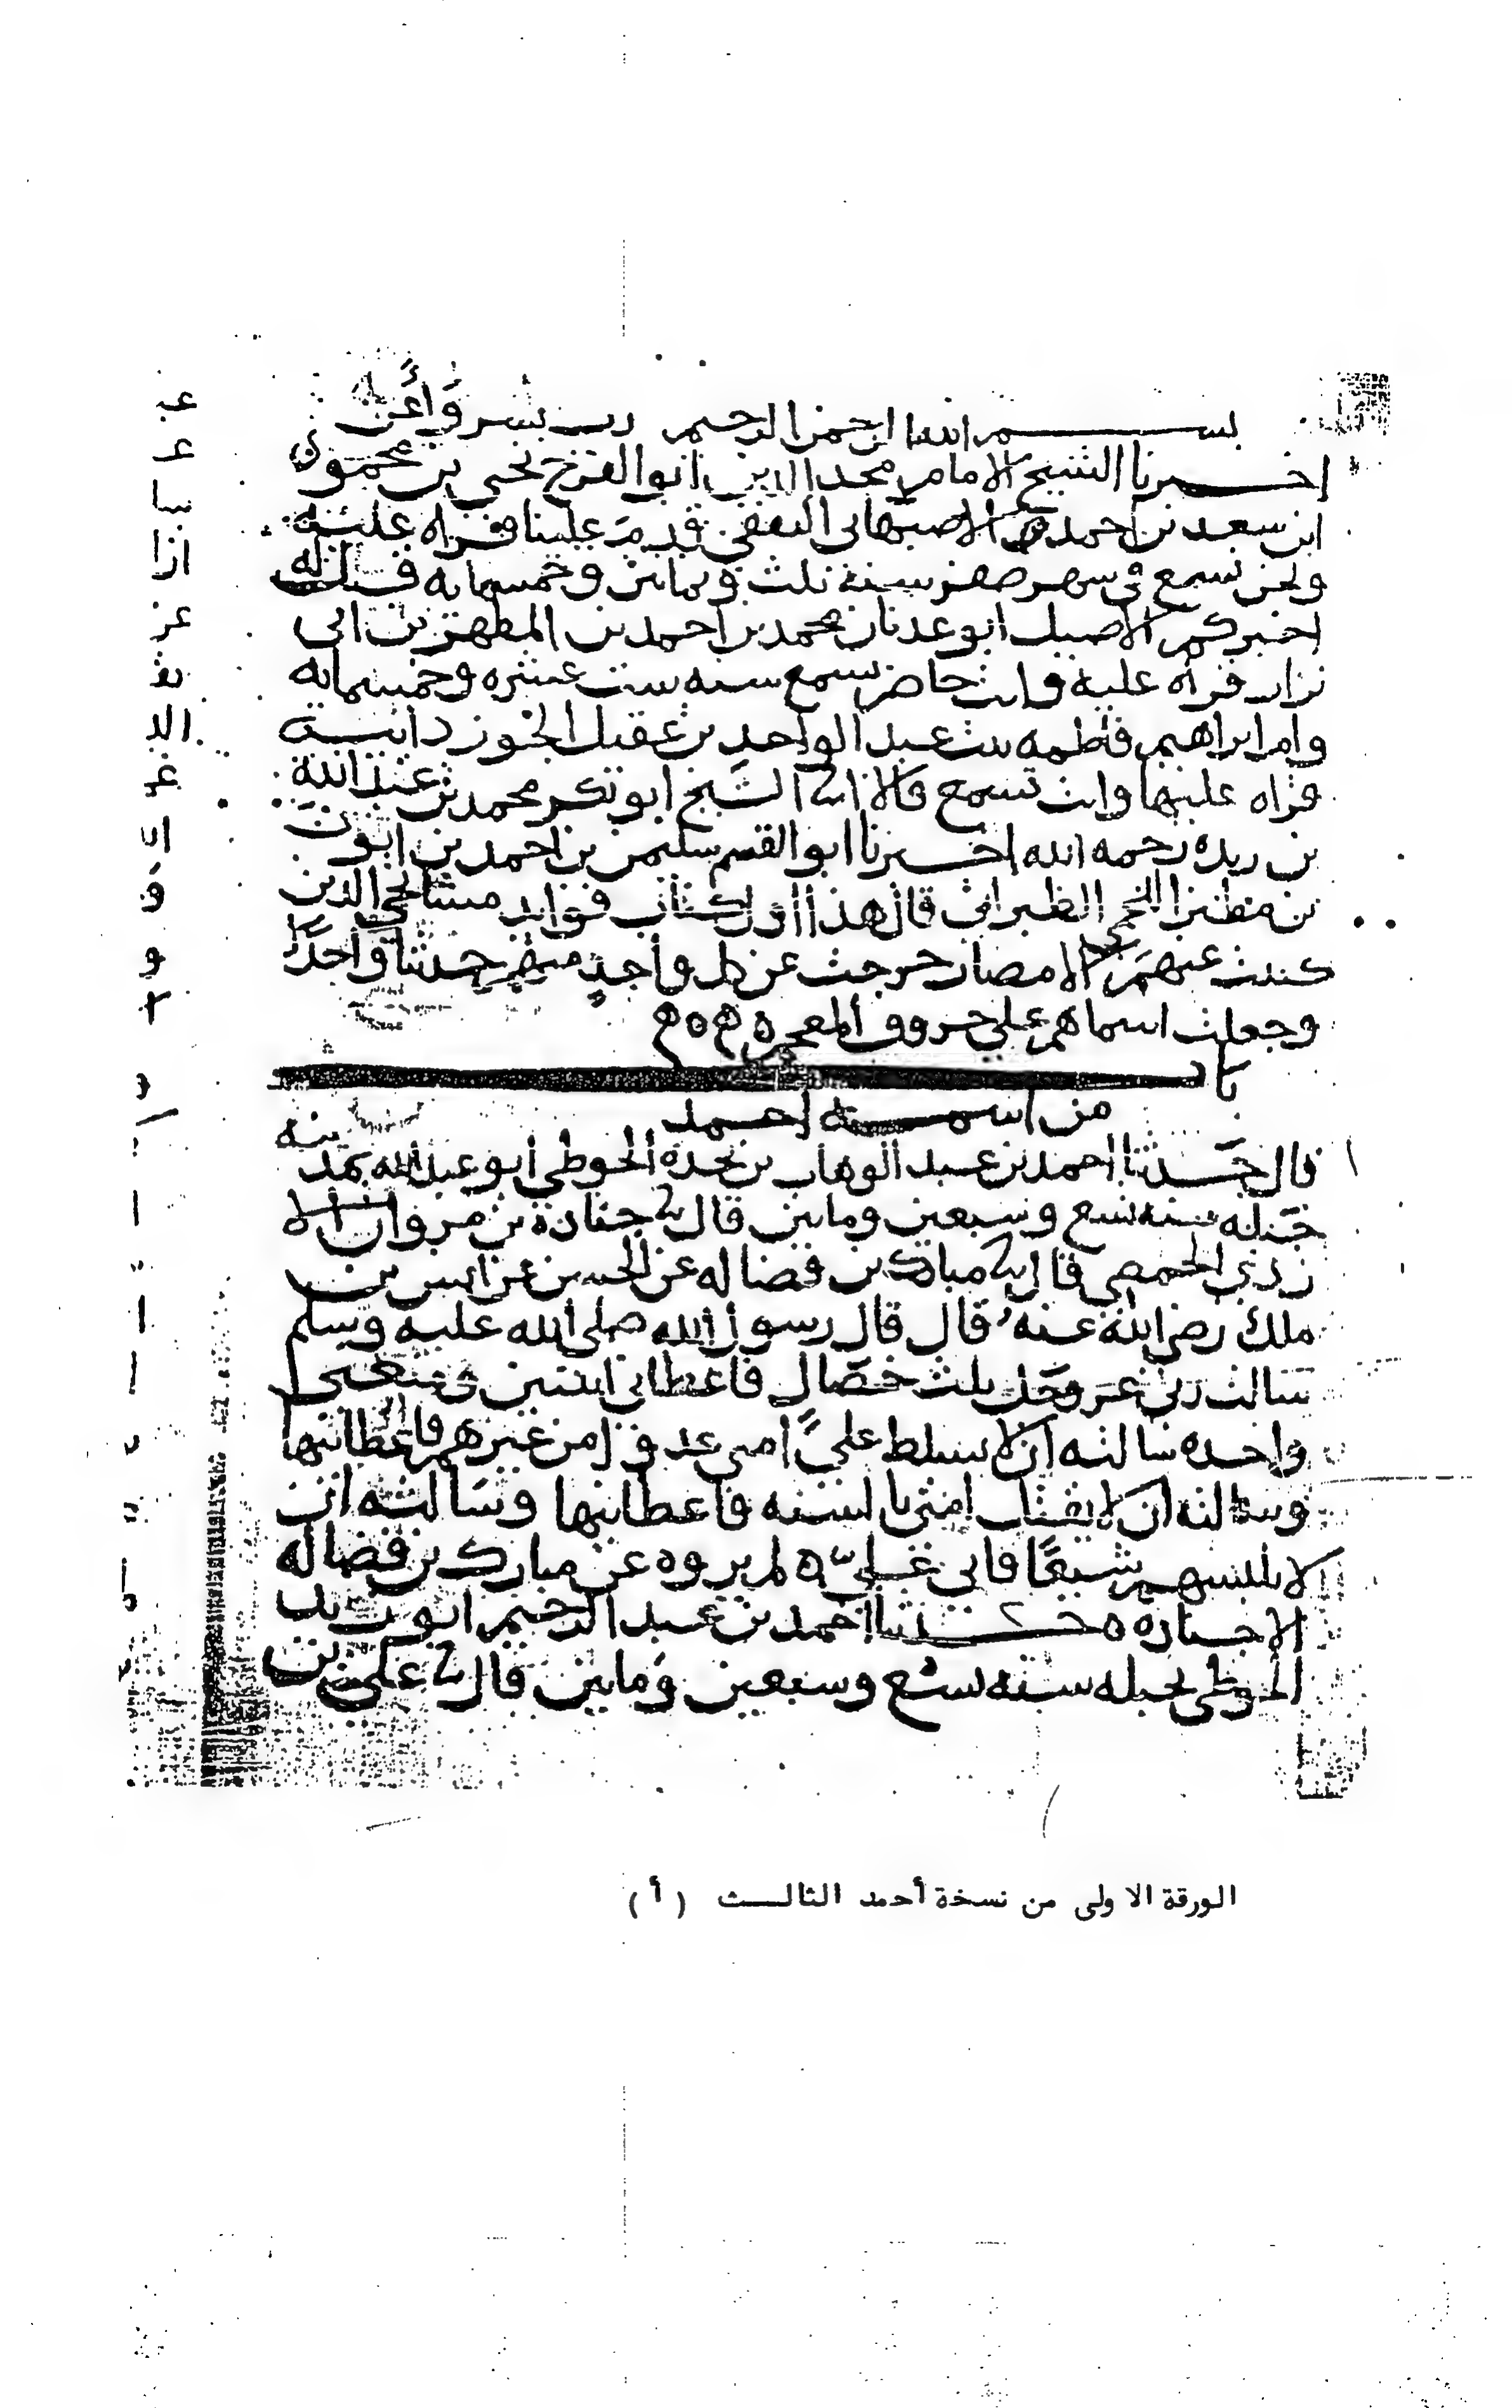 بسم الله الرحمن الرحيم رب يسر وأعن
اخبرنا الشيخ الامام مجد الدين ابو الفرج يحيى بن محمود
ابن سعد بن احمد الاصبهاني الثقفي قدم علينا قراه عليه
ونحن نسمع في شهر صفر سنة ثلث وثمانين وخمسمايه قيل له
اخبركم الاصيل ابو عدنان محمد بن احمد بن المطهر بن ابي
نزار قراه عليه وانت حاضر تسمع سنه ست عشره وخمسمايه
وام ابراهيم فاطمه بنت عبد الواحد بن عقيل الجوزدانية
قراه عليها وانت تسمع قالا انا الشيخ ابو بكر محمد بن عبد الله
بن ريده رحمه الله اخبرنا ابو القسم سليمن بن احمد بن ايوب
بن مطير اللخمي الطبراني قال هذا اول كتاب فوايد مشايخي الذين
كتبت عنهم بالامصار خرجت عن كل واحد منهم حديثا واحدًا
وجعلت اسماهم على حروف المعجم
باب
من اسمه احمد
قال حدثنا احمد بن عبد الوهاب بن نجدة الحوطي ابو عبد الله بمدينه
جبله سنه تسع وسبعين ومايتين قال ثنا جنادة بن مروان الا
زدي الحمصي قال ثنا مبارك بن فضاله عن الحسن عن انس بن
ملك رضي الله عنه قال قال رسول الله صلى الله عليه وسلم
سالت ربي عز وجل ثلث خصال فاعطاني اثنتين ومنعني
واحده سالته ان لا يسلط على امتي عدوا من غيرهم فاعطانيها
وسالته ان لا يقتل امتي بالسنه فاعطانيها وسالته ان
لا يلبسهم شيعًا فابى علي ه لم يروه عن مبارك بن فضاله
الا جناده ه حدثنا احمد بن عبد الرحيم ابو زيد
الحوطي بجبله سنه تسع وسبعين ومايتين قال ثنا علي بن
الورقة الاولى من نسخة أحمد الثالث (أ)